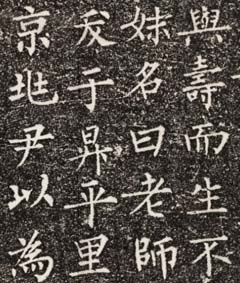 與壽而生不
妹名曰老師
友于昇平里
京兆尹以為